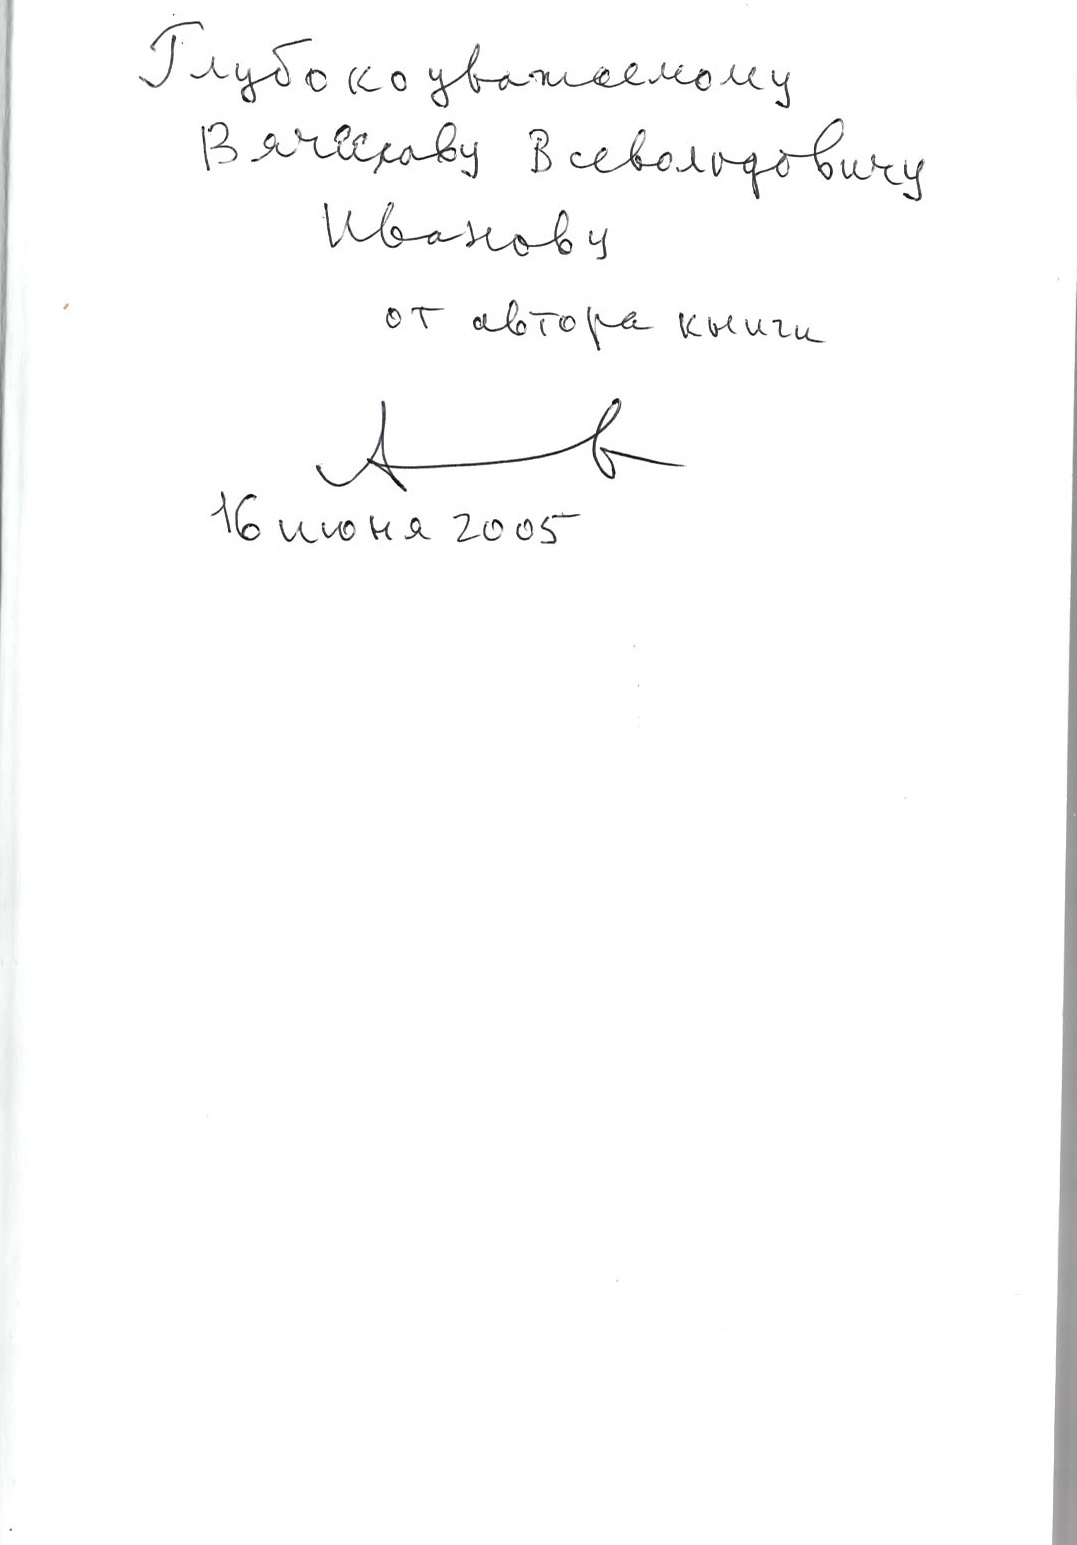 Глубокоуважаемому
Вячеславу Всеволодовичу
Иванову
от автора книги
16 июня 2005